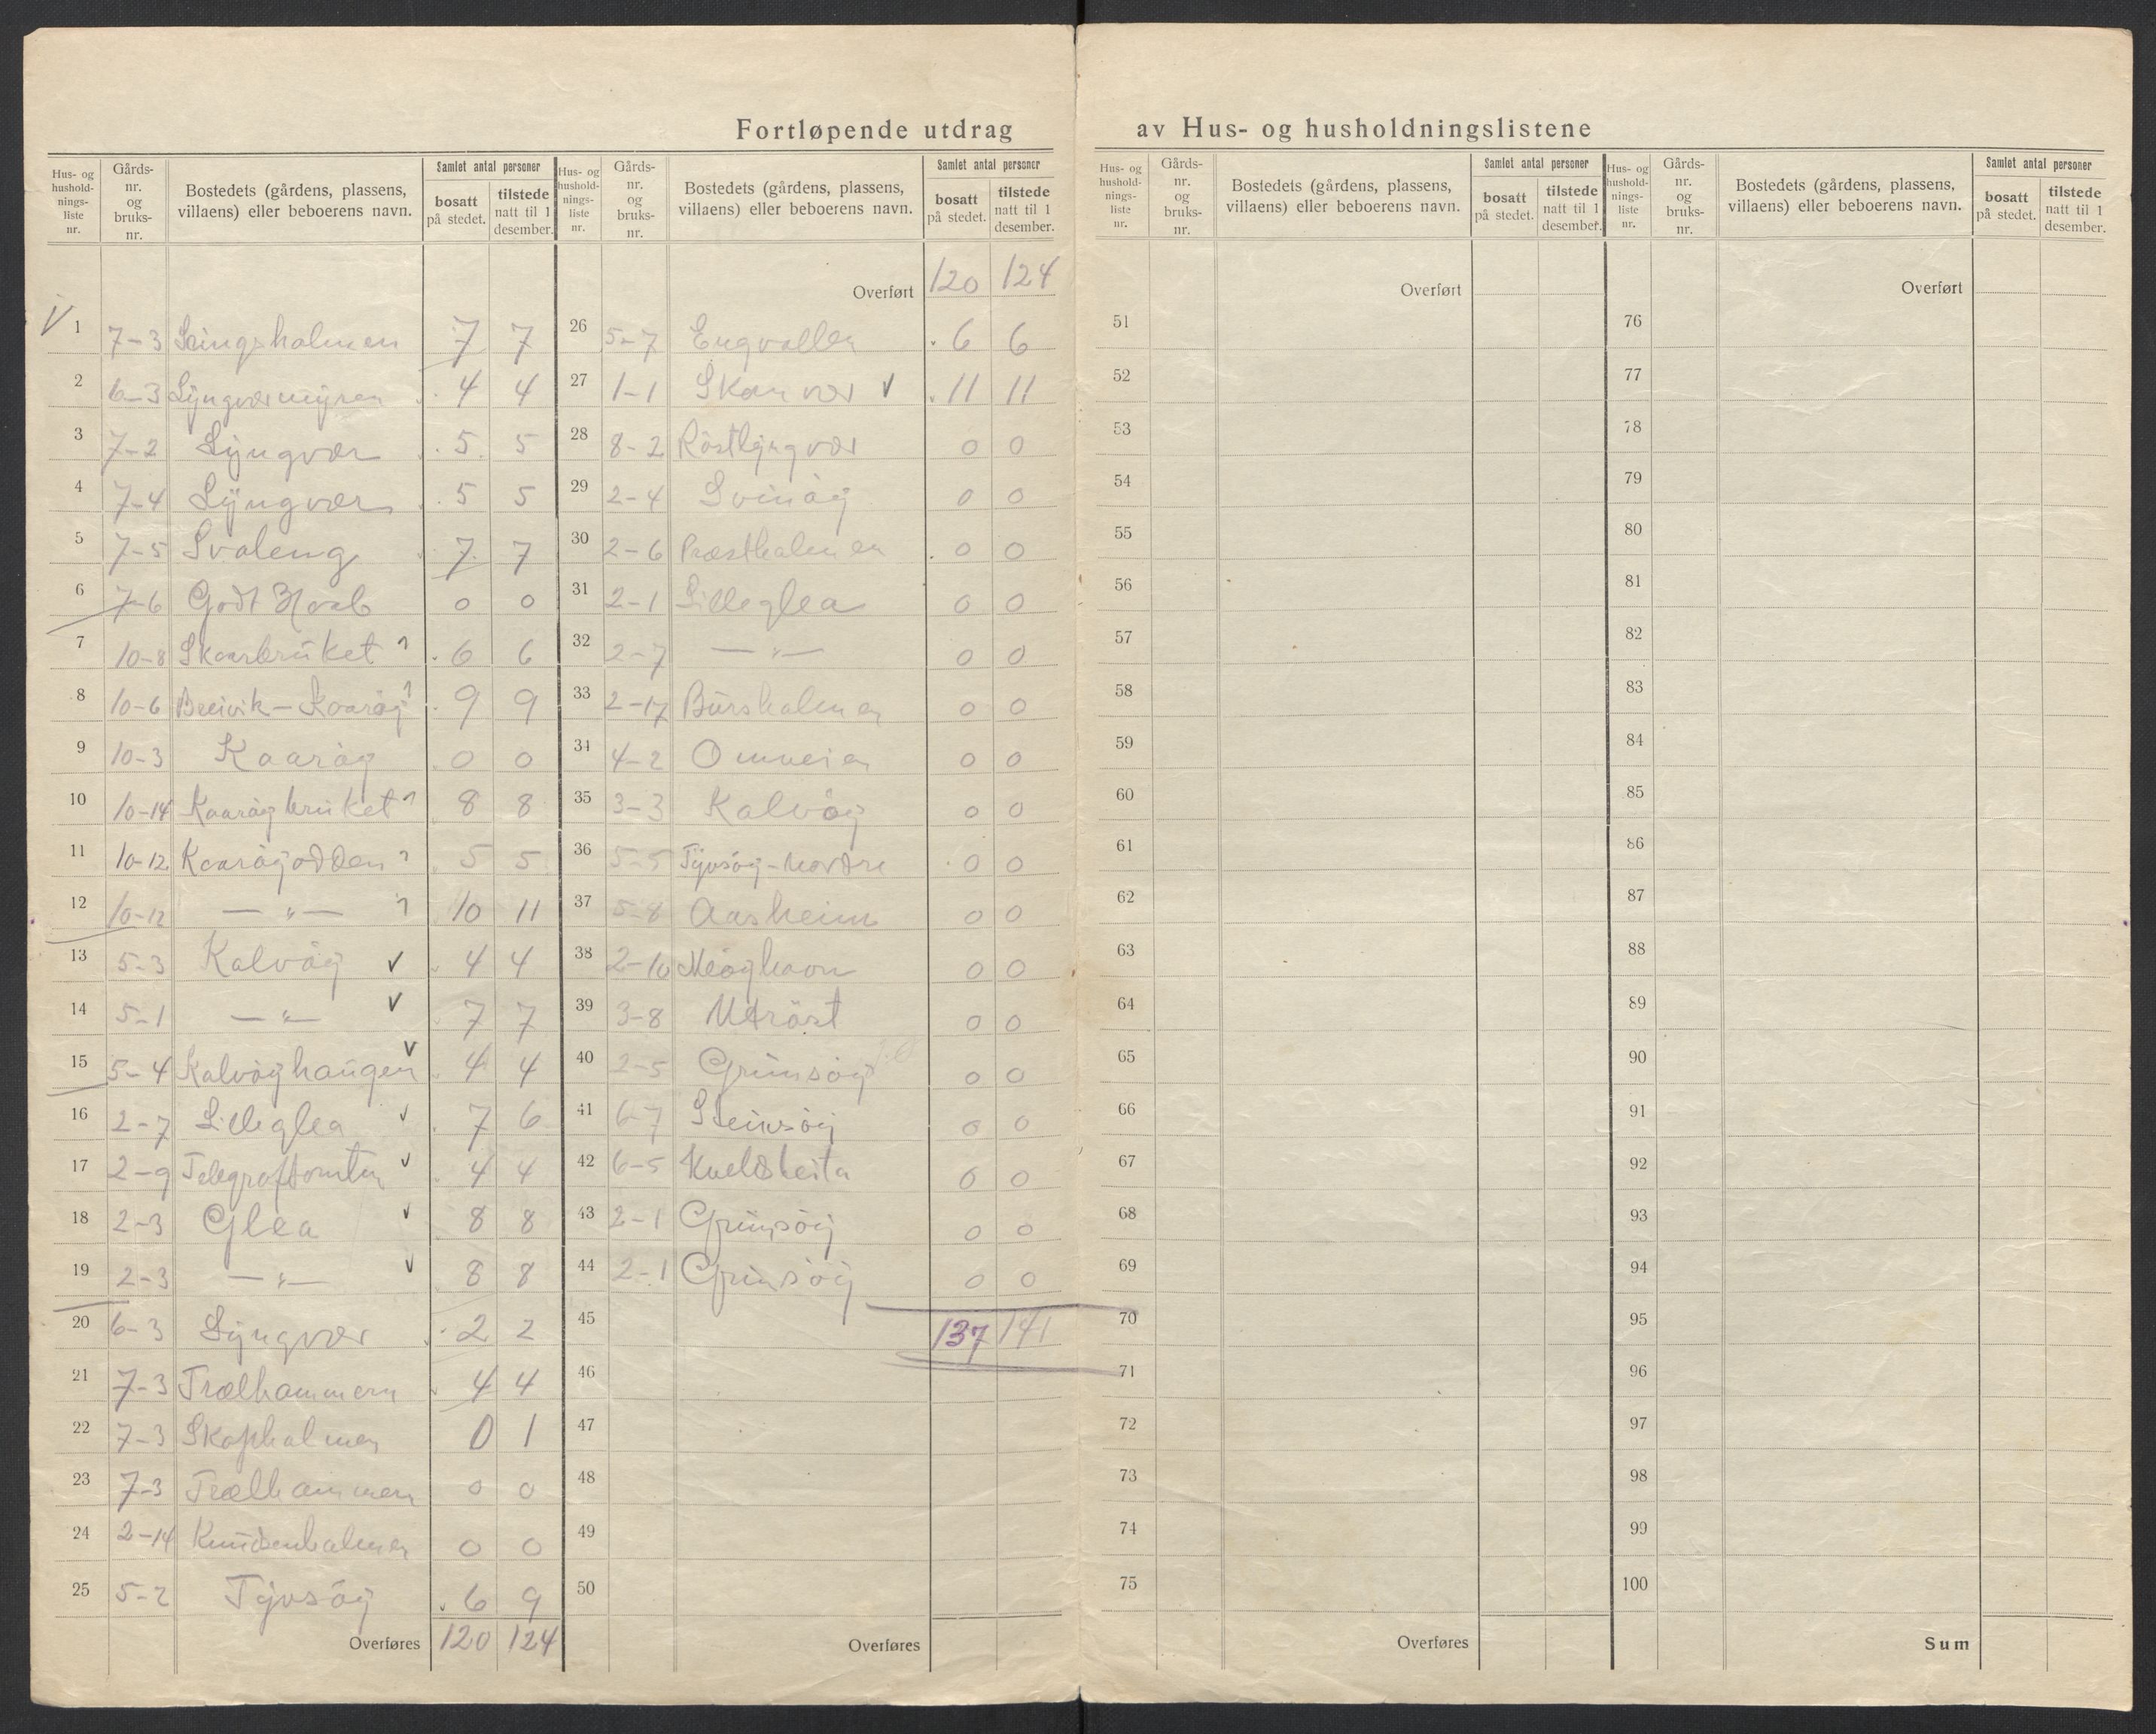 Fortløpende utdrag av Hus- og husholdningslistene
Hus- og hushold-nings-liste nr. | Gårds-nr. og bruks-nr. | Bostedets (gårdens, plassens, villaens) eller beboerens navn. | Samlet antal personer | bosatt på stedet. | tilstede natt til 1 desember.
1 7-3 Seingsholmen 7 7
2 6-3 Lyngværmyren 4 4
3 7-2 Lyngvær 5 5
4 7-4 Lyngvær 5 5
5 7-5 Svaleng 7 7
6 7-6 Godt Haab 0 0
7 10-8 Skaarbruket 6 6
8 10-6 Breivik-Kaarøy 9 9
9 10-3 Kaarøy 0 0
10 10-14 Kaarøybruket 8 8
11 10-12 Kaarøyodden 5 5
12 10-12 —"— 10 11
13 5-3 Kalvøy v 4 4
14 5-1 —"— v 7 7
15 5-4 Kalvøyhaugen v 4 4
16 2-7 Lilleglea v 7 6
17 2-9 Telegraftomten v 4 4
18 2-3 Glea v 8 8
19 2-3 —"— v 8 8
20 6-3 Lyngvær 2 2
21 7-3 Trælhammern 4 4
22 7-3 Skapholmen 0 1
23 7-3 Trælhammern 0 0
24 2-14 Knudsenholmen 0 0
25 5-2 Tyvsöy 6 9
Overføres 120 124
Hus- og hushold-nings-liste nr. | Gårds-nr. og bruks-nr. | Bostedets (gårdens, plassens, villaens) eller beboerens navn. | Samlet antal personer | bosatt på stedet. | tilstede natt til 1 desember.
Overført 120 124
26 5-7 Engvollen 6 6
27 1-1 Skomvær v 11 11
28 8-2 Röstlyngvær 0 0
29 2-4 Svinöy 0 0
30 2-6 Præstholmen 0 0
31 2-1 Lilleglea 0 0
32 2-7 —"— 0 0
33 2-17 Bursholmen 0 0
34 4-2 Omneien 0 0
35 3-3 Kalvöy 0 0
36 5-5 Tyvsöy-Nordre 0 0
37 5-8 Aasheim 0 0
38 2-10 Meöghavn 0 0
39 3-8 Utröst 0 0
40 2-5 Grimsöy 0 0
41 6-7 Steinsöy 0 0
42 6-5 Kveldsheita 0 0
43 2-1 Grimsöy 0 0
44 2-1 Grimsöy 0 0
45 137 141
46
47
48
49
50
Overføres
Hus- og hushold-nings-liste nr. | Gårds-nr. og bruks-nr. | Bostedets (gårdens, plassens, villaens) eller beboerens navn. | Samlet antal personer | bosatt på stedet. | tilstede natt til 1 desember.
Overført
51
52
53
54
55
56
57
58
59
60
61
62
63
64
65
66
67
68
69
70
71
72
73
74
75
Overføres
Hus- og hushold-nings-liste nr. | Gårds-nr. og bruks-nr. | Bostedets (gårdens, plassens, villaens) eller beboerens navn. | Samlet antal personer | bosatt på stedet. | tilstede natt til 1 desember.
Overført
76
77
78
79
80
81
82
83
84
85
86
87
88
89
90
91
92
93
94
95
96
97
98
99
100
Sum